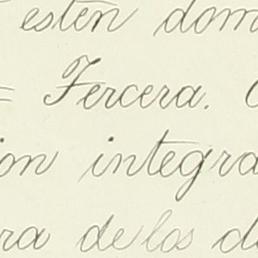 estén dom
= Tercera. C
ion integra
ra de los d